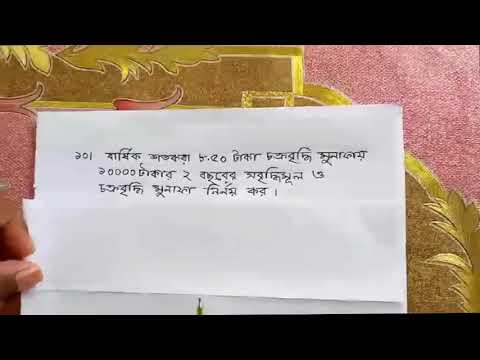 ১০। বার্ষিক শতকরা ৮.৫০ টাকা চক্রবৃদ্ধি মুনাফায়
১০০০০ টাকার ২ বছরের সবৃদ্ধিমূল ও
চক্রবৃদ্ধি মুনাফা নির্নয় কর।